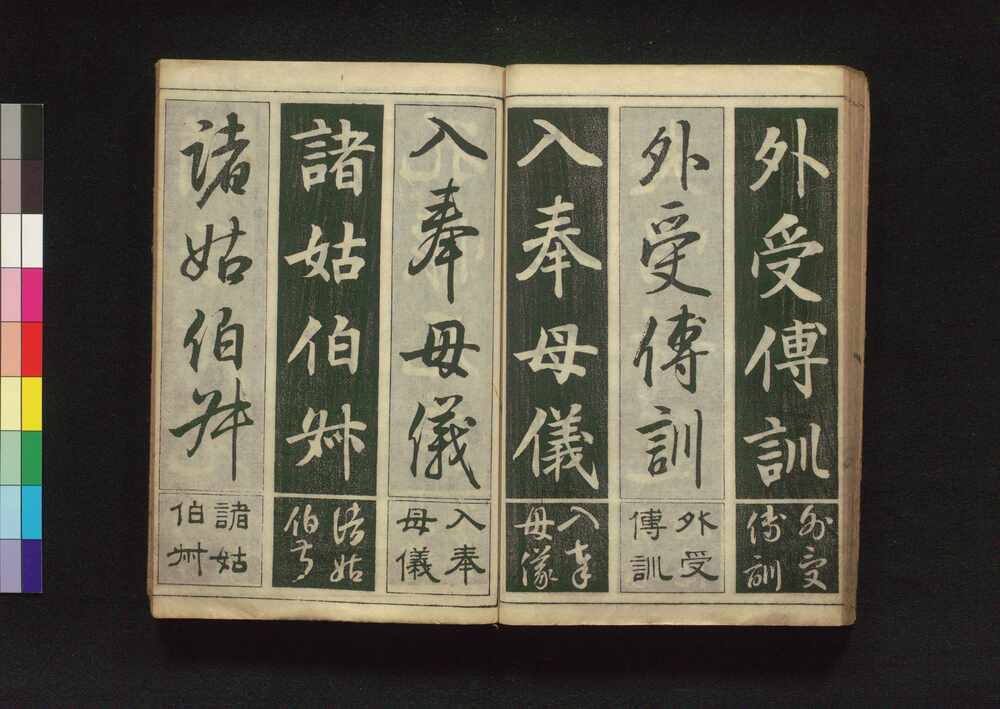 外受傅訓
外
受
傅
訓
外受傅訓
外受
傅訓
入奉母儀
入奉
母儀
入奉母儀
入奉
母儀
諸姑伯叔
諸姑
伯叔
諸姑伯叔
諸姑
伯叔